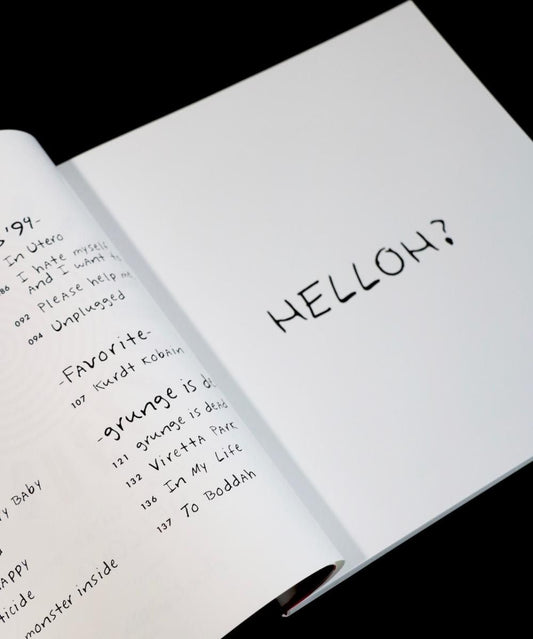 '94-
In Utero
086 I hate myself
And I want to
092 Please help me
094 Unplugged
-Favorite-
107 Kurdt Kobain
-grunge is
121 grunge is dead
132 Viretta Park
136 In My Life
137 To Boddah
Baby
monster inside
HELLOH?